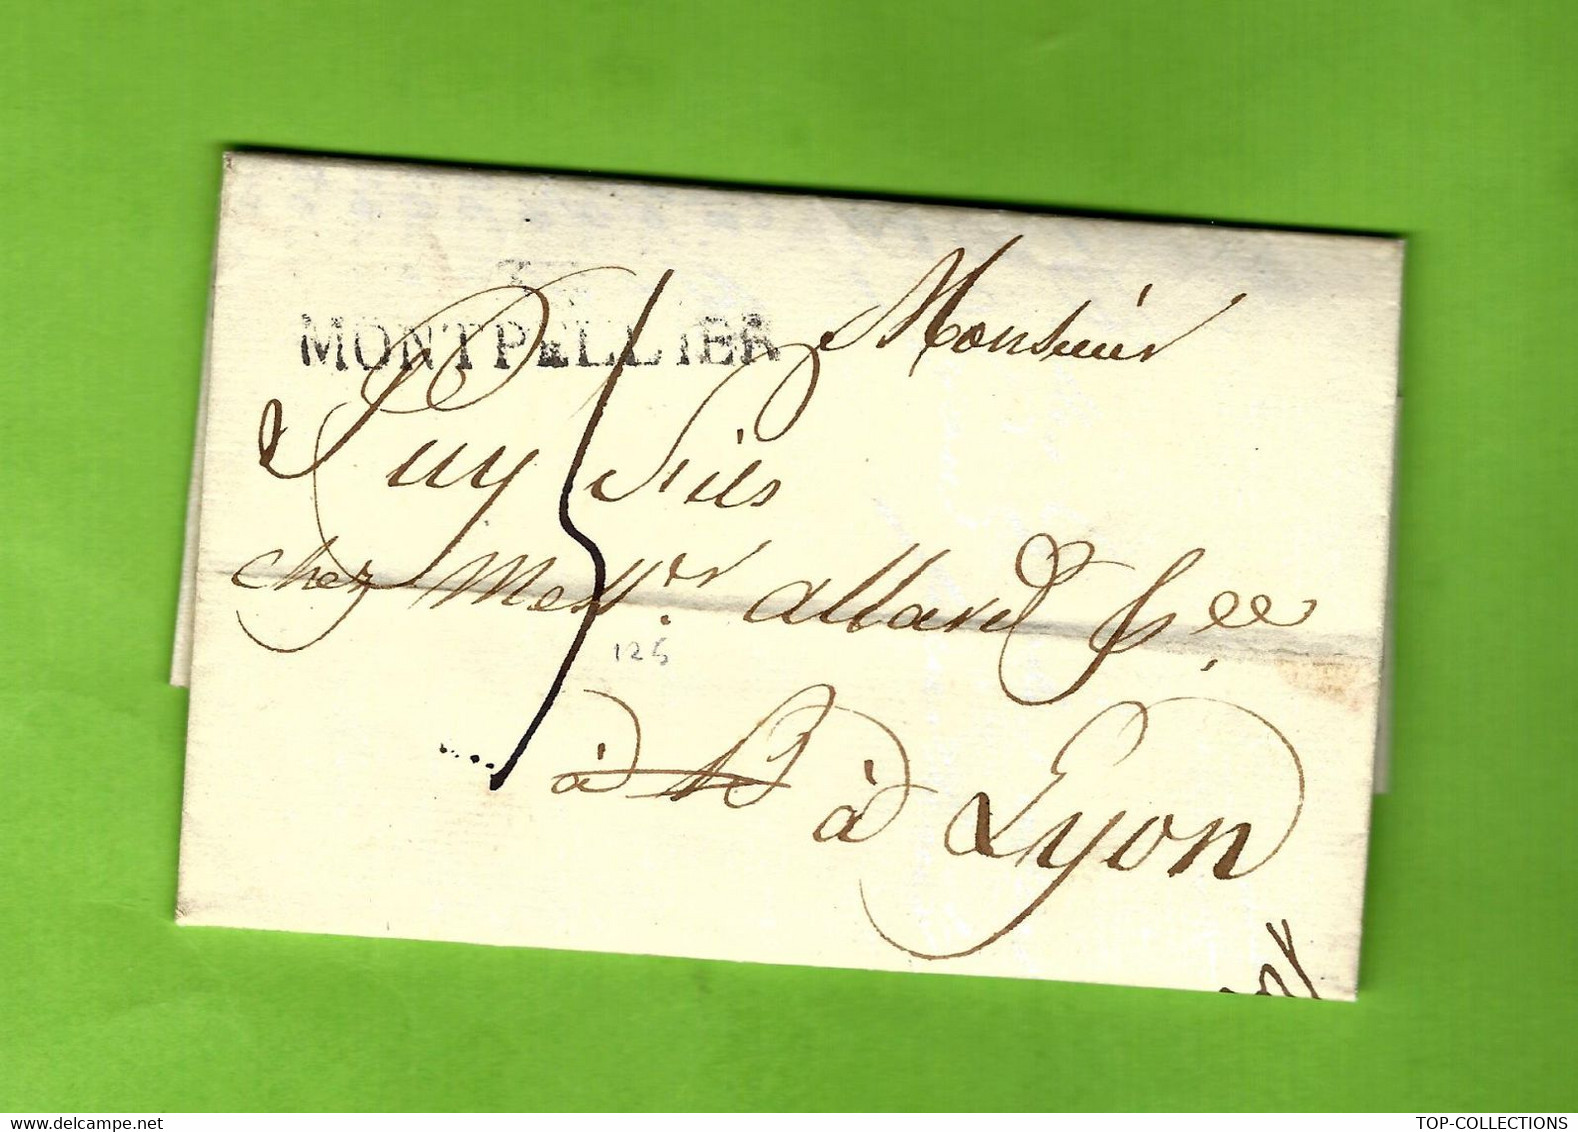 MONTPELLIER
Monsieur
Puy fils
chez Mess.rs allard f.ee
125
à à Lyon
www.delcampe.net
TOP-COLLECTIONS